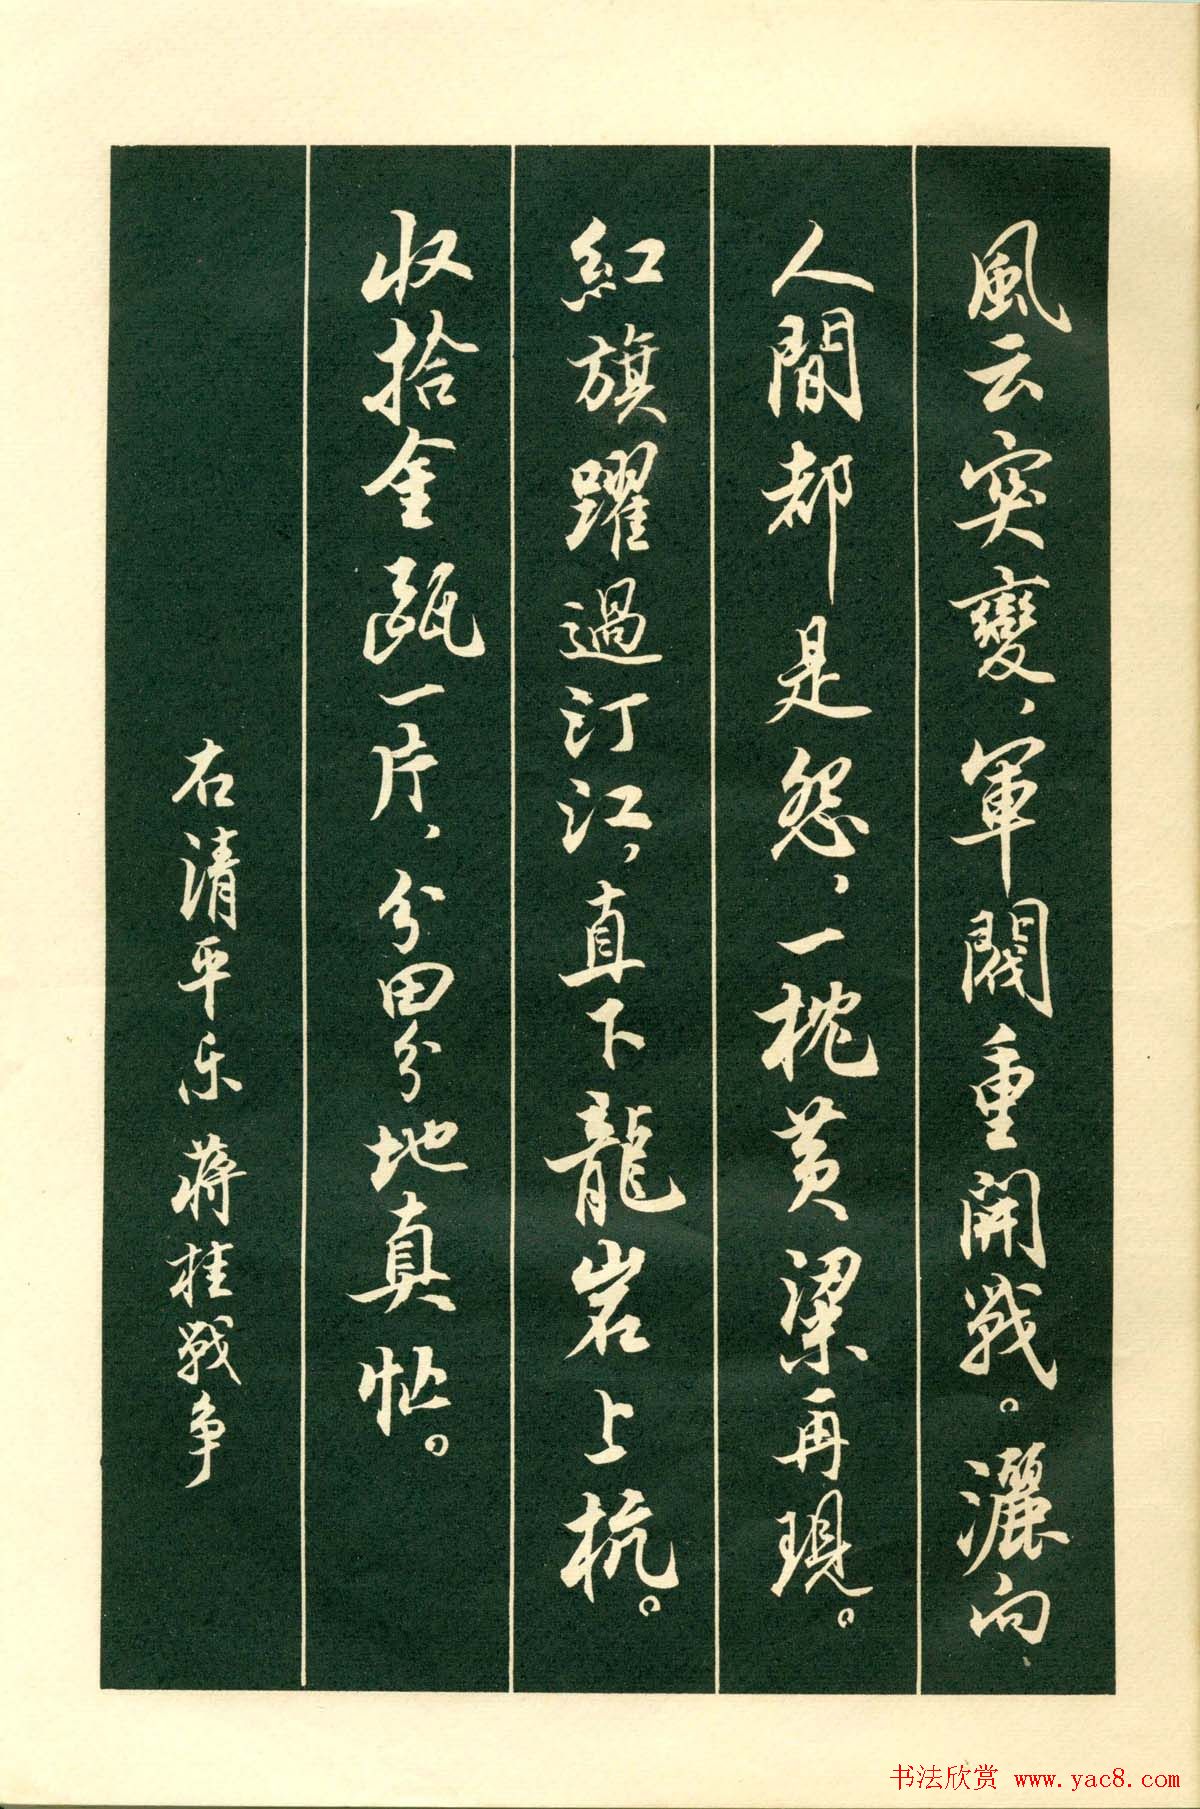 風云突變、軍閥重開戰。灑向、
人間都是怨、一枕黄粱再現。
紅旗躍過汀江，直下龍岩上杭。
收拾金甌一片、分田分地真忙。
右清平乐 蒋桂战争
书法欣赏 www.yac8.com